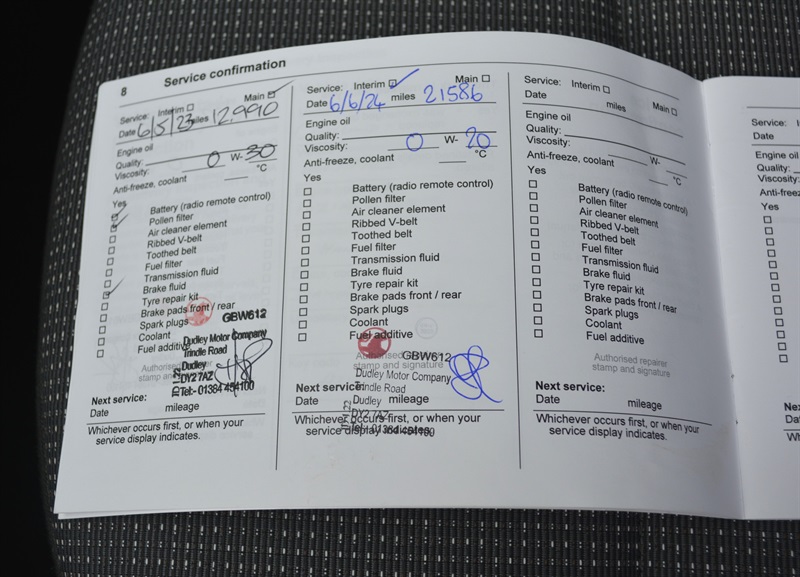 8 Service confirmation
Service: Interim Main
Date 6/5/23 miles 12,990
Engine oil
Quality:
Viscosity: 0 W- 30
Anti-freeze, coolant °C
Yes
Battery (radio remote control)
Pollen filter
Air cleaner element
Ribbed V-belt
Toothed belt
Fuel filter
Transmission fluid
Brake fluid
Tyre repair kit
Brake pads front / rear
Spark plugs
Coolant
Fuel additive
GBW612
Dudley Motor Company
Trindle Road
Dudley
DY2 7AZ
Tel:- 01384 454100
Authorised repairer
stamp and
Next service:
Date mileage
Whichever occurs first, or when your
service display indicates.
Service: Interim Main
Date 6/6/24 miles 21586
Engine oil
Quality:
Viscosity: 0 W- 20
Anti-freeze, coolant °C
Yes
Battery (radio remote control)
Pollen filter
Air cleaner element
Ribbed V-belt
Toothed belt
Fuel filter
Transmission fluid
Brake fluid
Tyre repair kit
Brake pads front / rear
Spark plugs
Coolant
Fuel additive
Authorised
stamp and signature
GBW612
Dudley Motor Company
Trindle Road
Dudley
DY2 7AZ
Tel:- 01384 454100
Next service:
Date mileage
Whichever occurs first, or when your
service display indicates.
Service: Interim Main
Date miles
Engine oil
Quality:
Viscosity: W-
Anti-freeze, coolant °C
Yes
Battery (radio remote control)
Pollen filter
Air cleaner element
Ribbed V-belt
Toothed belt
Fuel filter
Transmission fluid
Brake fluid
Tyre repair kit
Brake pads front / rear
Spark plugs
Coolant
Fuel additive
Authorised repairer
stamp and signature
Next service:
Date mileage
Whichever occurs first, or when your
service display indicates.
Service:
Date
Engine oil
Quality:
Viscosity:
Yes